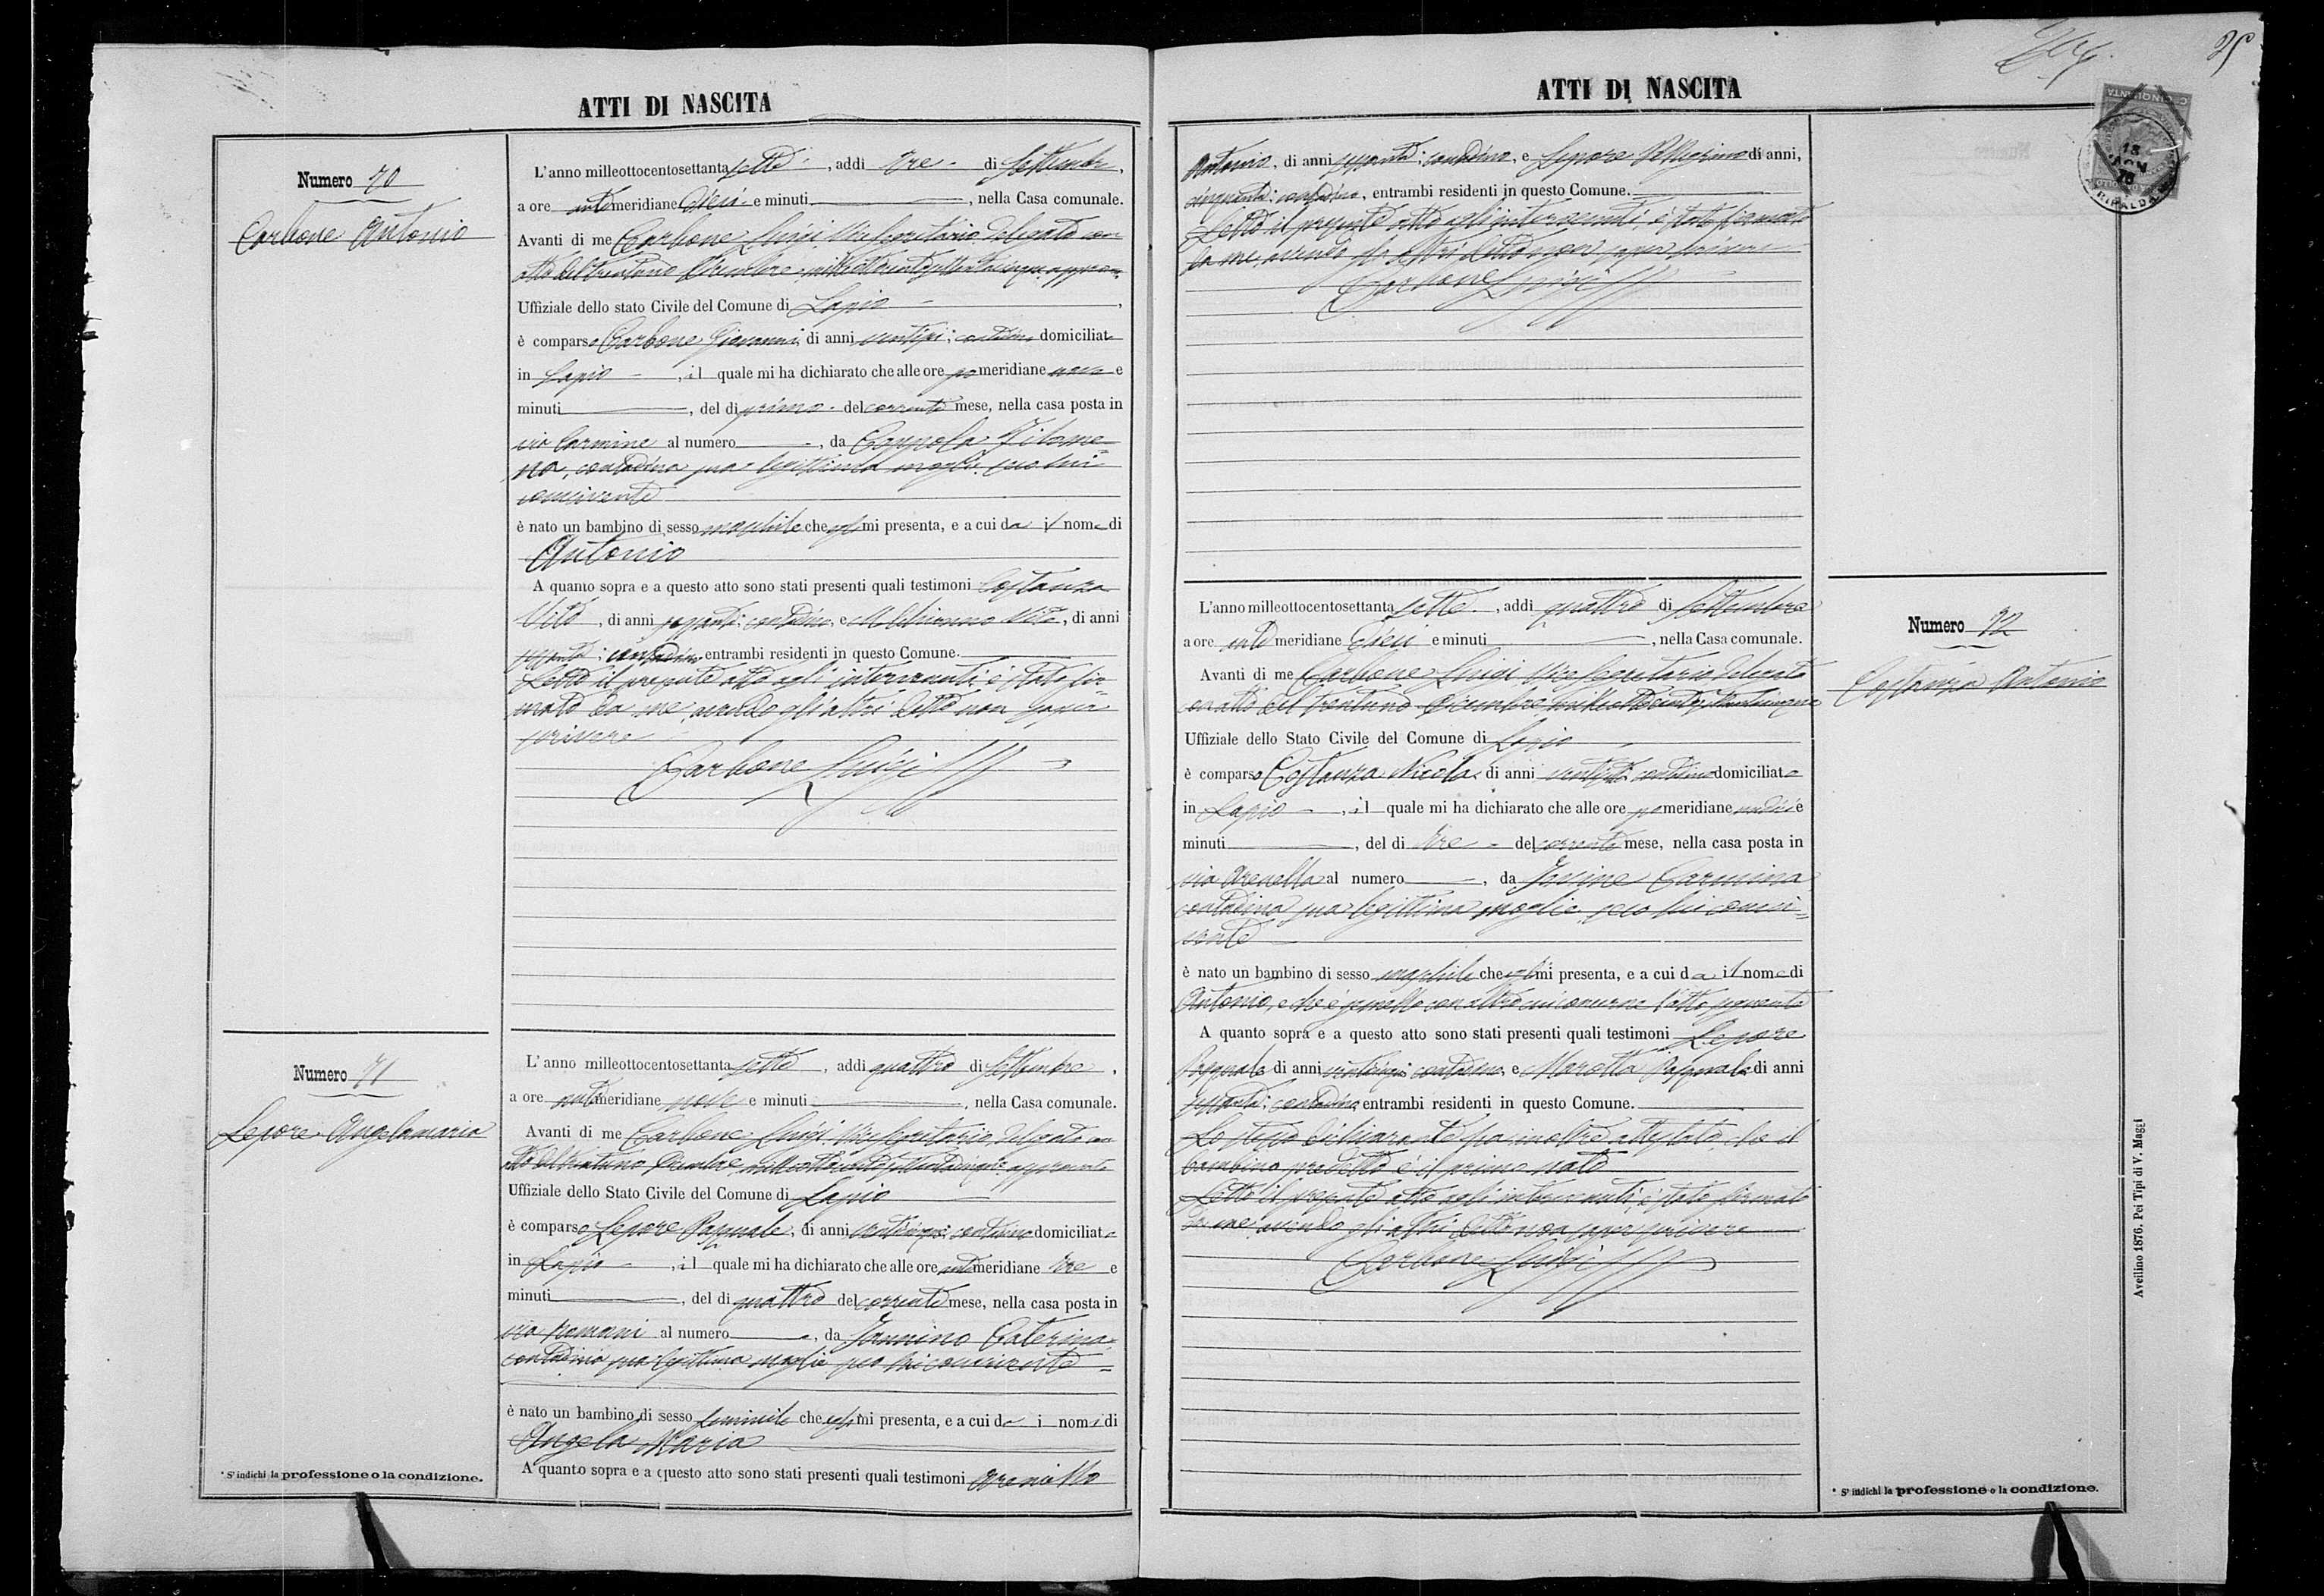 ATTI DI NASCITA
Numero 70
Carbone Antonio
L'anno milleottocentosettanta sette, addì tre di Settembre,
a ore anti meridiane dieci e minuti, nella Casa comunale.
Avanti di me Carbone Luigi Vice Segretario delegato con
atto del trentuno Dicembre milleottocentosettantacinque approv.
Uffiziale dello stato Civile del Comune di Lapio,
è comparso Carbone Giovanni, di anni contadino domiciliato
in Lapio, il quale mi ha dichiarato che alle ore po meridiane nove e
minuti, del dì primo del corrente mese, nella casa posta in
via Carmine al numero, da Coppola Filome=
na, contadina sua legittima moglie seco lui
convivente
è nato un bambino di sesso maschile che egli mi presenta, e a cui da il nome di
Antonio
A quanto sopra e a questo atto sono stati presenti quali testimoni Costanza
Vito, di anni sessanta, contadino, e Vito, di anni
sessanta, contadino entrambi residenti in questo Comune.
Letto il presente atto agli intervenuti è stato fir=
mato da me, avendo gli altri detto non saper
scrivere
Carbone Luigi
Numero 71
Lepore Angelamaria
L'anno milleottocentosettanta sette, addì quattro di Settembre,
a ore anti meridiane nove e minuti, nella Casa comunale.
Avanti di me Carbone Luigi Vice Segretario delegato con
atto del trentuno Dicembre milleottocentosettantacinque approvato
Uffiziale dello Stato Civile del Comune di Lapio
è comparso Lepore Pasquale, di anni venticinque, contadino domiciliato
in Lapio, il quale mi ha dichiarato che alle ore anti meridiane tre e
minuti, del dì quattro del corrente mese, nella casa posta in
via Romani al numero, da Jannino Caterina
contadina sua legittima moglie seco lui convivente
è nato un bambino di sesso feminile che egli mi presenta, e a cui da i nomi di
Angela Maria
A quanto sopra e a questo atto sono stati presenti quali testimoni Areniello
* S'indichi la professione o la condizione.
ATTI DI NASCITA
25
Antonio, di anni sessanta, contadino, e Lepore Pellegrino di anni,
cinquanta, contadino, entrambi residenti in questo Comune.
Letto il presente atto agli intervenuti, è stato firmato
da me, avendo gli altri detto non saper scrivere
Carbone Luigi
L'anno milleottocentosettanta sette, addì quattro di Settembre
a ore anti meridiane dieci e minuti, nella Casa comunale.
Avanti di me Carbone Luigi Vice Segretario delegato
con atto del trentuno Dicembre milleottocentosettantacinque
Uffiziale dello Stato Civile del Comune di Lapio
è comparso Costanza Nicola, di anni contadino domiciliato
in Lapio, il quale mi ha dichiarato che alle ore po meridiane undici e
minuti, del dì tre del corrente mese, nella casa posta in
via Arenella al numero, da Jovine Carmina
contadina sua legittima moglie, seco lui convi=
vente
è nato un bambino di sesso maschile che egli mi presenta, e a cui da il nome di
Antonio, e che è gemello con altro cui concerne l'atto seguente
A quanto sopra e a questo atto sono stati presenti quali testimoni Lepore
Pasquale di anni venticinque contadino, e Marotta Pasquale di anni
sessanta, contadino, entrambi residenti in questo Comune.
Lo stesso dichiarante ha inoltre attestato che il
bambino predetto è il primo nato
Letto il presente atto agli intervenuti, è stato firmato
da me avendo gli altri detto non saper scrivere
Carbone Luigi
Numero 72
Costanza Antonio
* S'indichi la professione o la condizione.
Avellino 1876. Pei Tipi di V. Maggi